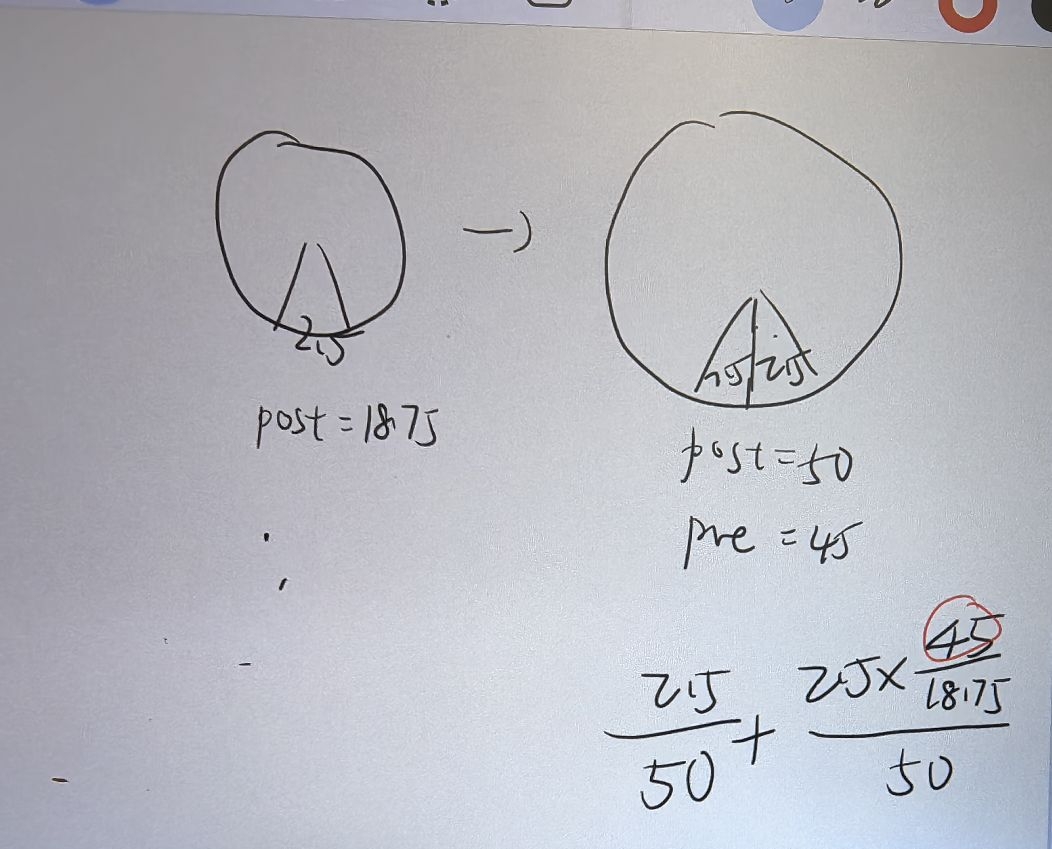 2.5
→
post = 18.75
2.5 2.5
post = 50
pre = 45
2.5/50 + (2.5 × 45/18.75)/50